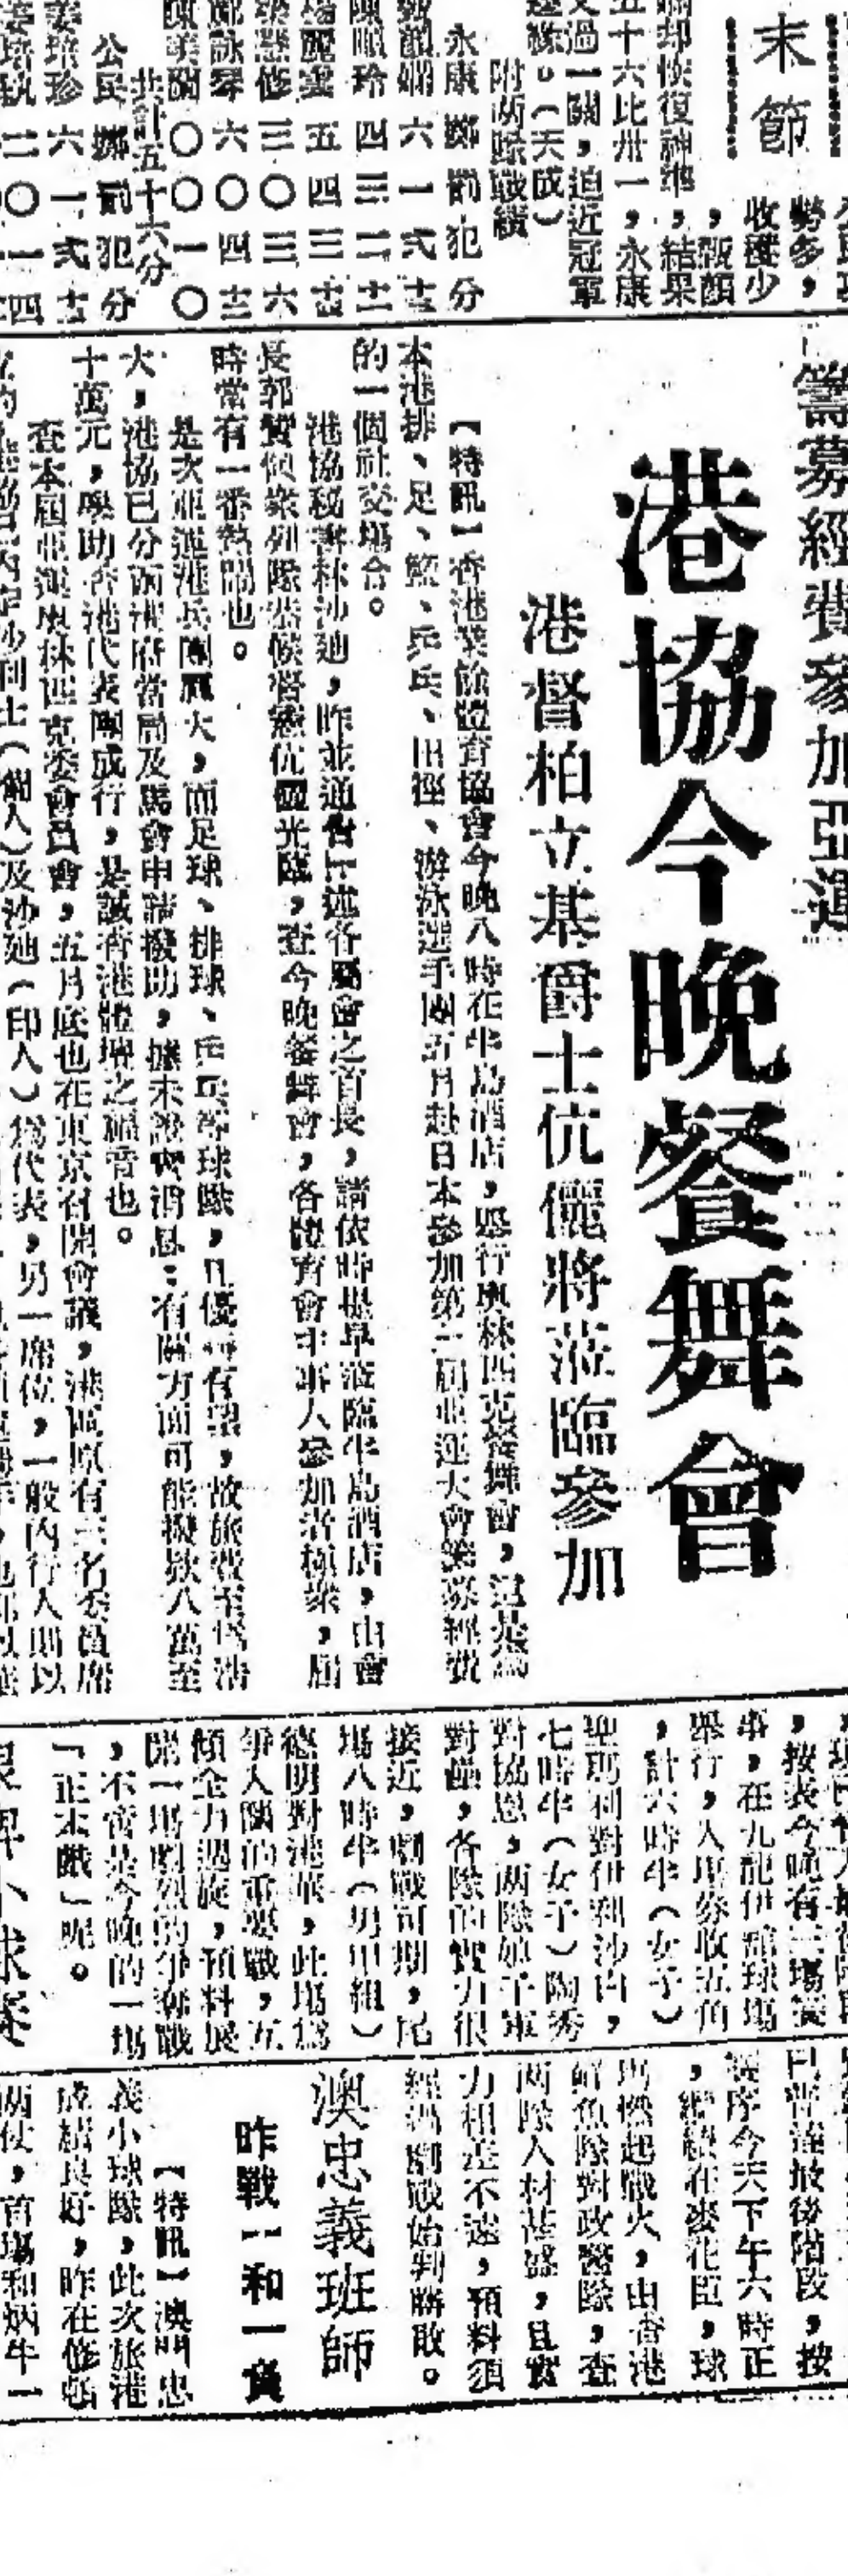 末節
收穫少
，靦顏
，結果
五十六比卅一，永康
又過一關，迫近冠軍
（天成）
附兩隊戰績
永康 擲 罰 犯 分
六 一 弍 十三
玲 四 三 二 十一
五 四 三 十四
三 〇 三 六
詠琴 六 〇 四 十二
〇 〇 一 〇
共計五十六分
公民 擲 罰 犯 分
六 一 弍 十三
二 〇 一 四
籌募經費參加亞運
港協今晚餐舞會
港督柏立基爵士伉儷將蒞臨參加
【特訊】香港業餘體育協會今晚八時在半島酒店，舉行奧林匹克餐舞會，這是為
本港排、足、籃、乒乓、田徑、游泳選手團五月赴日本參加第三屆亞運大會籌募經費
的一個社交場合。
港協秘書林沙迪，昨並通告下述各屬會之首長，請依時提早蒞臨半島酒店，由會
長郭贊傾衆列隊恭候督憲伉儷光臨，查今晚餐舞會，各體育會中事人參加者極衆，屆
時當有一番熱鬧也。
是次亞運港兵團龐大，而足球、排球、乒乓等球隊，且優勝有望，故旅費至為浩
大，港協已分函港府當局及馬會申請撥助，據未證實消息：有關方面可能撥款八萬至
十萬元，學助香港代表團成行，是誠香港體壇之福音也。
查本屆亞運奧林匹克委會員會，五月底也在東京召開會議，港區原有三名委員席
沙利士（個人）及沙廸（印人）爲代表，另一席位，一般內行人則以
，按表今晚有三場賽
事，在九龍伊館球場
舉行，入場券收五角
，計六時半（女子）
聖瑪利對伊利沙白，
七時半（女子）陶秀
對協恩，兩隊娘子軍
對壘，各隊的實力很
接近，劇戰可期，尾
場八時半（男甲組）
德明對港華，此場爲
爭入關的重要戰，互
傾全力週旋，預料展
開一場劇烈的爭奪戰
，不啻是今晚的一場
「正本戲」呢。
已普達最後階段，按
賽序今天下午六時正
，繼續在麥花臣，球
場燃起戰火，由香港
鮮魚隊對政醫隊，查
兩隊人材甚盛，且實
力相差不遠，預料須
經過劇戰始判勝敗。
澳忠義班師
昨戰一和一負
【特訊】澳門忠
義小球隊，此次旅港
成績良好，昨在修頓
兩仗，首場和炳牛一